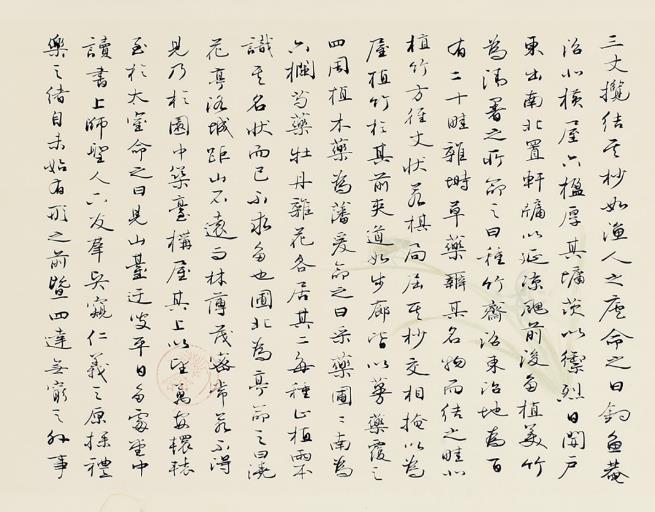 三丈攬結其杪如漁人之廬命之曰釣魚菴
沼北橫屋六楹厚其墉茨以禦烈日開戶
東出南北置軒牖以延涼颸前後多植美竹
為清暑之所命之曰種竹齋沼東治地為百
有二十畦雜蒔草藥辨其名物而結之畦北
植竹方徑丈狀若棋局屈其杪交相掩以為
屋植竹於其前夾道如步廊皆以蔓藥覆之
四周植木藥為藩爰命之曰采藥圃圃南為
六欄芍藥牡丹雜花各居其二每種止植兩本
識其名狀而已不求多也圃北為亭命之曰澆
花亭洛城距山不遠而林薄茂密常若不得
見乃於園中築臺構屋其上以望萬安轘轅
至於太室命之曰見山臺迂叟平日多處堂中
讀書上師聖人下友羣賢窺仁義之原探禮
樂之緒自未始有形之前暨四達無窮之外事